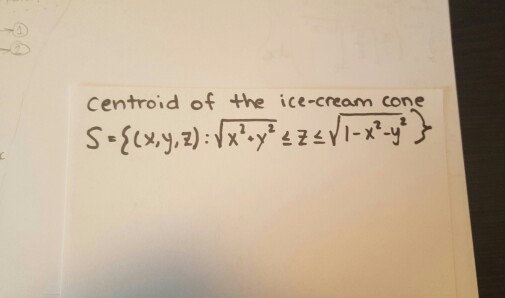 centroid of the ice-cream cone
S = {(x,y,z) : √x²+y² ≤ z ≤ √1-x²-y² }